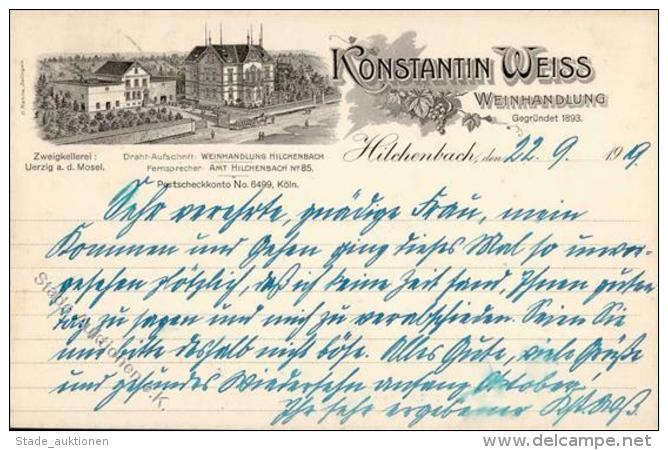 KONSTANTIN WEISS
WEINHANDLUNG
Gegründet 1893.
Zweigkellerei:
Uerzig a. d. Mosel.
Draht-Aufschrift: WEINHANDLUNG HILCHENBACH
Fernsprecher: AMT HILCHENBACH Nº 85.
Postscheckkonto No. 6499, Köln.
Hilchenbach, den 22. 9. 1919
Sehr verehrte, gnädige Frau, mein
Kommen und Gehen ging dieses Mal so unvor-
gesehen plötzlich, daß ich keine Zeit fand, Ihnen guten
Tag zu sagen und mich zu verabschieden. Seien Sie
mir bitte deshalb nicht böse. Alles Gute, viele Grüße
und gesundes Wiedersehn anfang Oktober,
Ihr sehr ergebener
Stade Auktionen e.K.
Stade_auktionen
www.delcampe.net